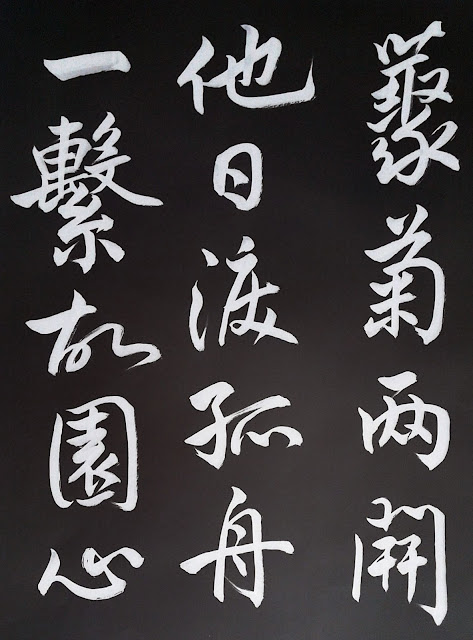 藂菊两開
他日淚孤舟
一繫故園心